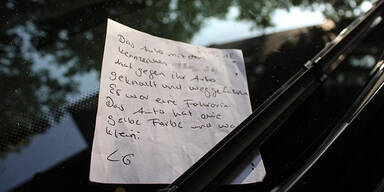 Das Auto mit dem
Kennzeichen
hat gegen ihr Auto
geknallt und weggefahren
Es war eine Fahrerin
Das Auto hat eine
gelbe Farbe und war
klein.
LG